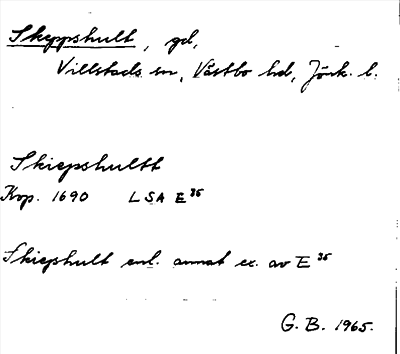 Skeppshult, gd,
Villstads sn, Västbo hd, Jönk. l.
Skiepshultt
Kop. 1690 LSA E 36
Skiephult enl. annat ex. av E 36
G. B. 1965.